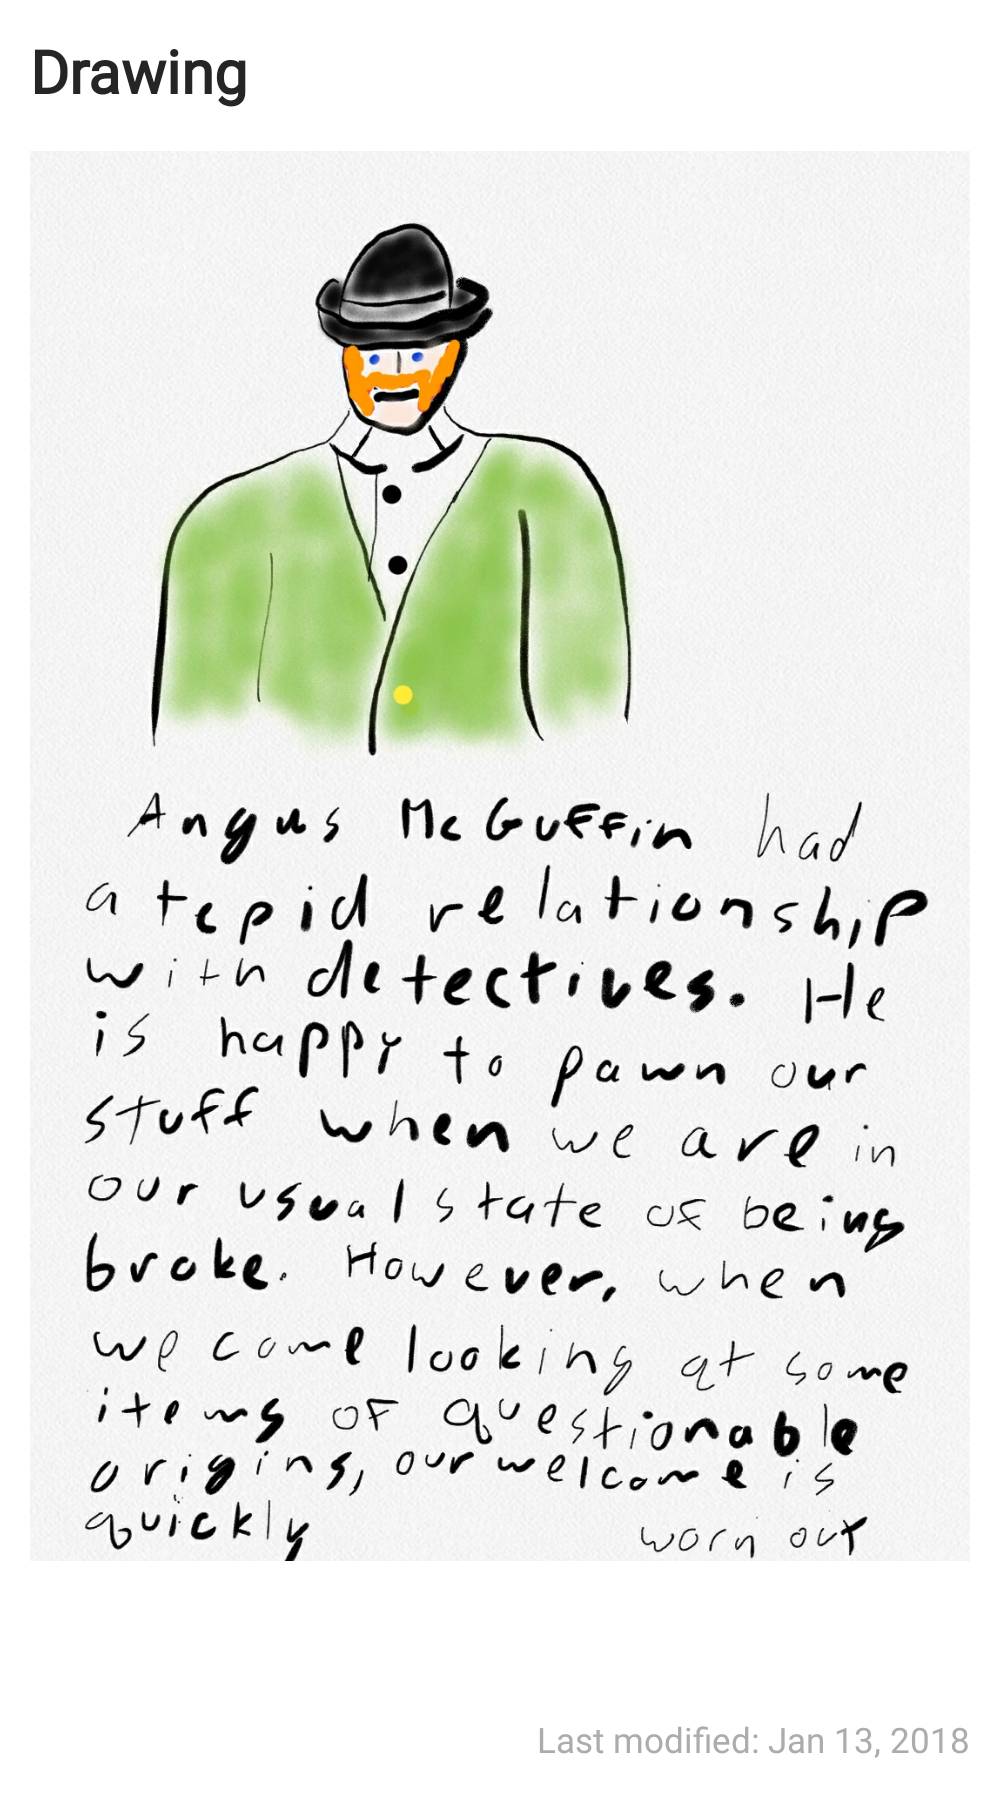 Drawing
Angus McGuffin had
a tepid relationship
with detectives. He
is happy to pawn our
stuff when we are in
our usual state of being
broke. However, when
we come looking at some
items of questionable
origins, our welcome is
quickly worn out
Last modified: Jan 13, 2018